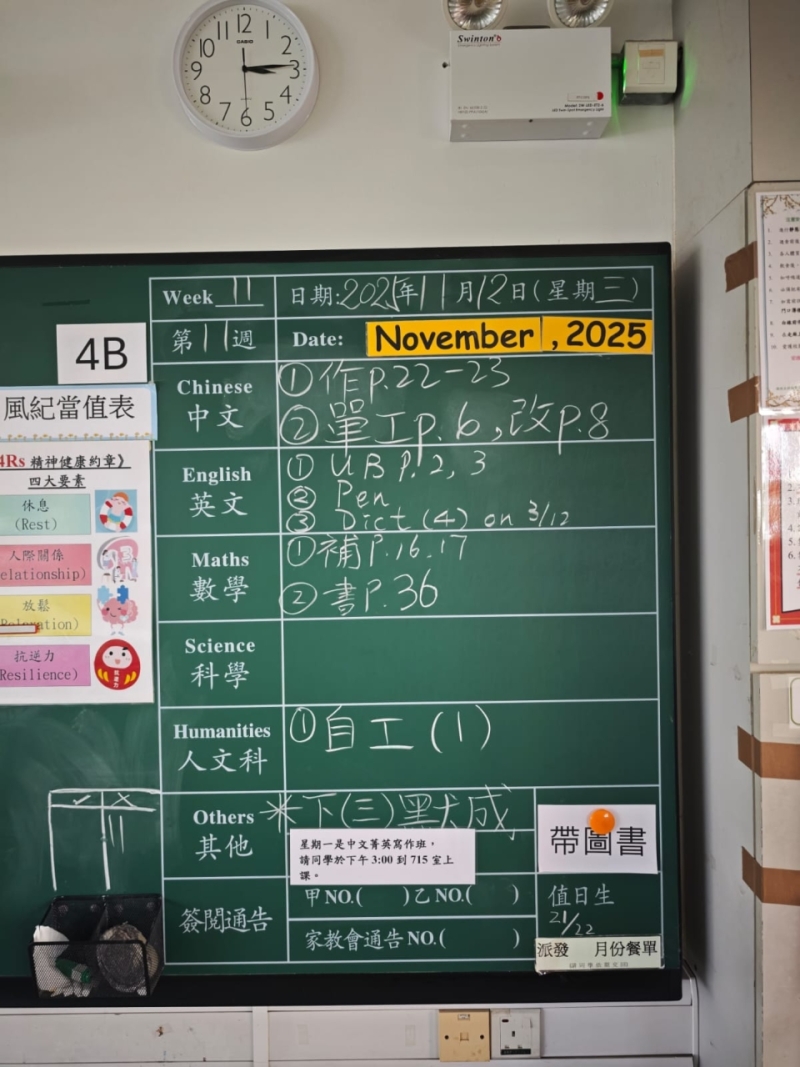 12
11
1
10
2
CASIO
9
3
8
4
7
5
6
Swinton's
Week 11
日期:2025年11月12日(星期三)
第11週
Date: November , 2025
4B
風紀當值表
4Rs 精神健康約章》
四大要素
休息
(Rest)
人際關係
elationship)
放鬆
抗逆力
Resilience)
Chinese
中文
①作p.22-23
②單工p.6,改p.8
English
英文
① UB p.2, 3
② Pen
③ Dict (4) on 3/12
Maths
數學
①補P.16.17
②書P.36
Science
科學
Humanities
人文科
①自工(1)
✓ ×
Others
其他
*下(三)默成
星期一是中文菁英寫作班，
請同學於下午 3:00 到 715 室上
課。
帶圖書
簽閱通告
甲NO.( )乙NO.( )
家教會通告NO.( )
值日生
21/22
派發 月份餐單